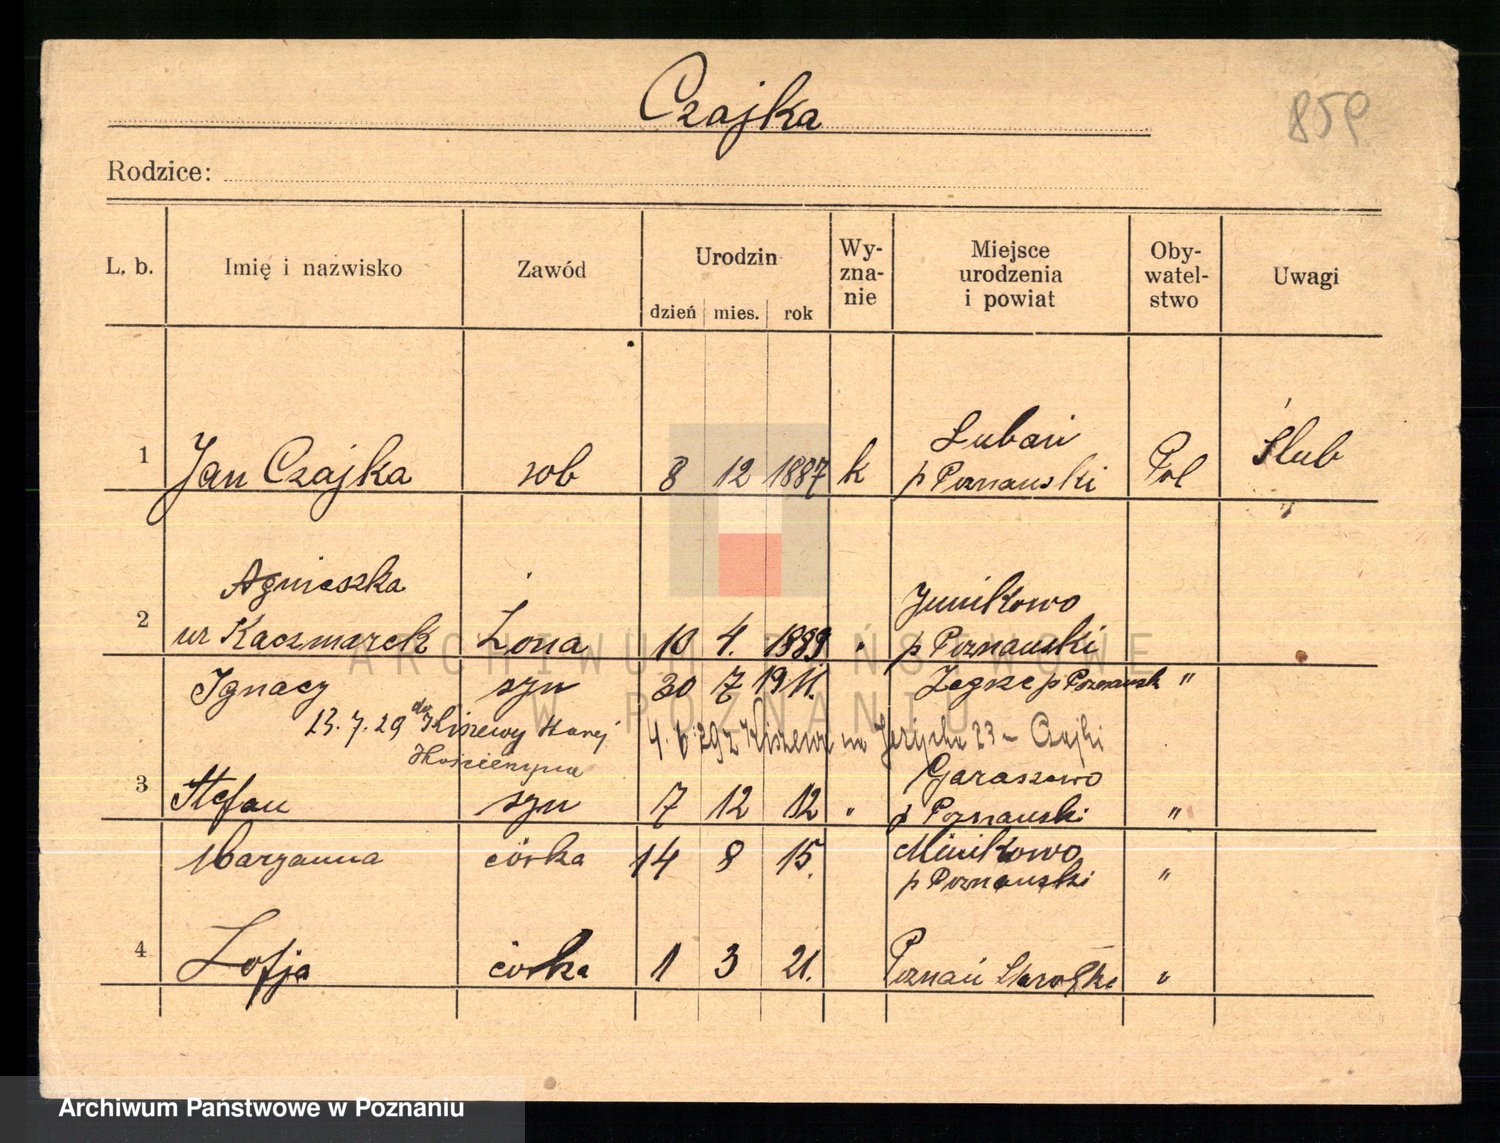 Czajka
859
Rodzice:
L. b. Imię i nazwisko Zawód Urodzin dzień mies. rok Wy-zna-nie Miejsce urodzenia i powiat Oby-watel-stwo Uwagi
1 Jan Czajka rob 8 12 1887 k Lubań p Poznański Pol Ślub
2 Agnieszka ur Kaczmarek Żona 10 4. 1889 " Junikowo p Poznański
Ignacy syn 30 7 1911. Żegrze p Poznański "
13.7.29 do Kiszewy Starej Kościerzyna
4.6.29 z Kiszewa na 23 - Czajki
3 Stefan syn 7 12 12 " Garaszewo p Poznański "
Maryanna córka 14 8 15. Minikowo p Poznański "
4 Zofja córka 1 3 21. Poznań Starołęka "
ARCHIWUM PAŃSTWOWE
W POZNANIU
Archiwum Państwowe w Poznaniu